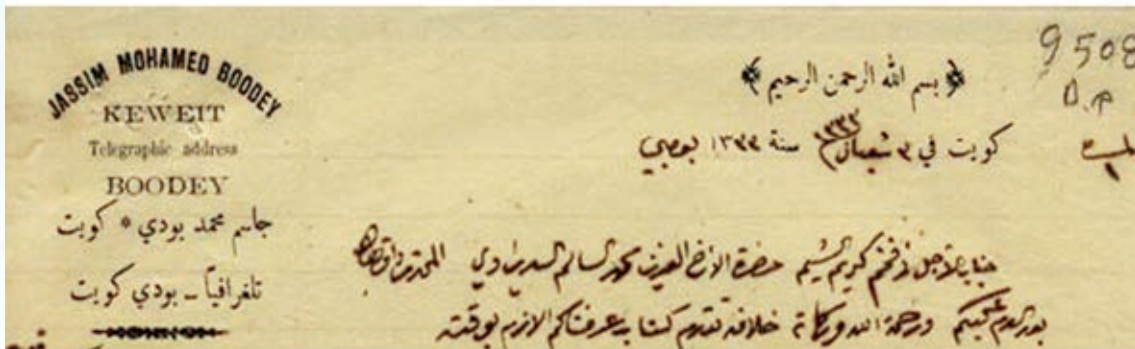 JASSIM MOHAMED BOODEY
KEWEIT
Telegraphic address
BOODEY
جاسم محمد بودي * كويت
تلغرافياً ـ بودي كويت
9508
بسم الله الرحمن الرحيم
كويت في ٣ شعبان ١٣٣٣ سنة ١٣٣٣ بومبي
جناب الأجل الأفخم كريم الشيم حضرة الأخ العزيز محمد السالم السديراوي المحترم
عليكم ورحمة الله وبركاته خلافه تقدم كتاب عرفناكم الازم بوقته